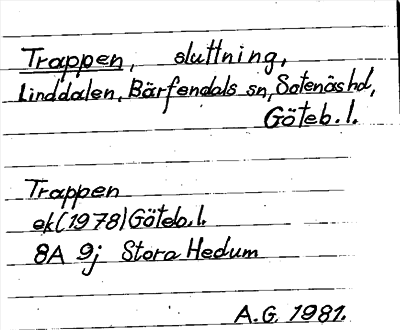 Trappen, sluttning,
Linddalen, Bärfendals sn, Sotenäs hd,
Göteb. l.
Trappen
ek (1978) Göteb. l.
8A 9j Stora Hedum
A.G. 1981.